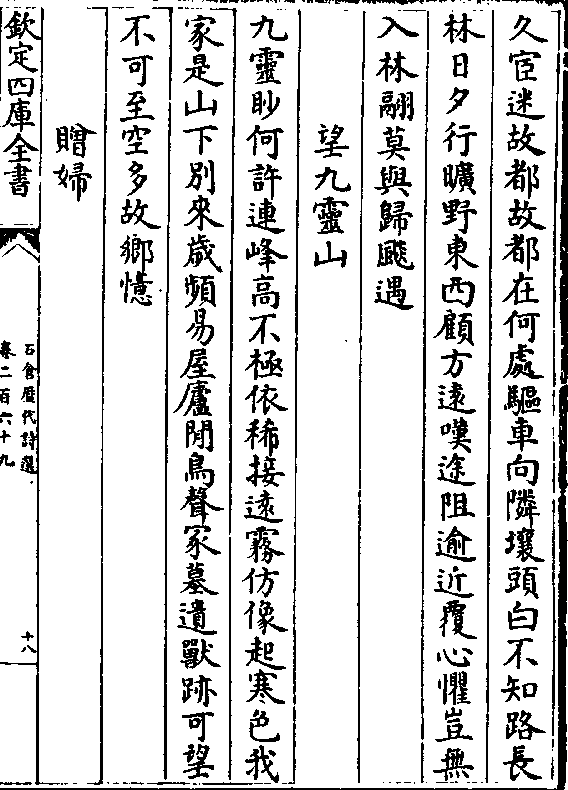 久宦迷故都故都在何處驅車向隣壤頭白不知路長
林日夕行曠野東西顧方遠嘆途阻逾近覆心懼豈無
入林翮莫與歸颷遇
望九靈山
九靈眇何許連峰高不極依稀接遠霧仿像起寒色我
家是山下別來歲頻易屋廬閒鳥聲冢墓遺獸跡可望
不可至空多故鄉憶
贈婦
欽定四庫全書
石倉歷代詩選
卷二百六十九
十八